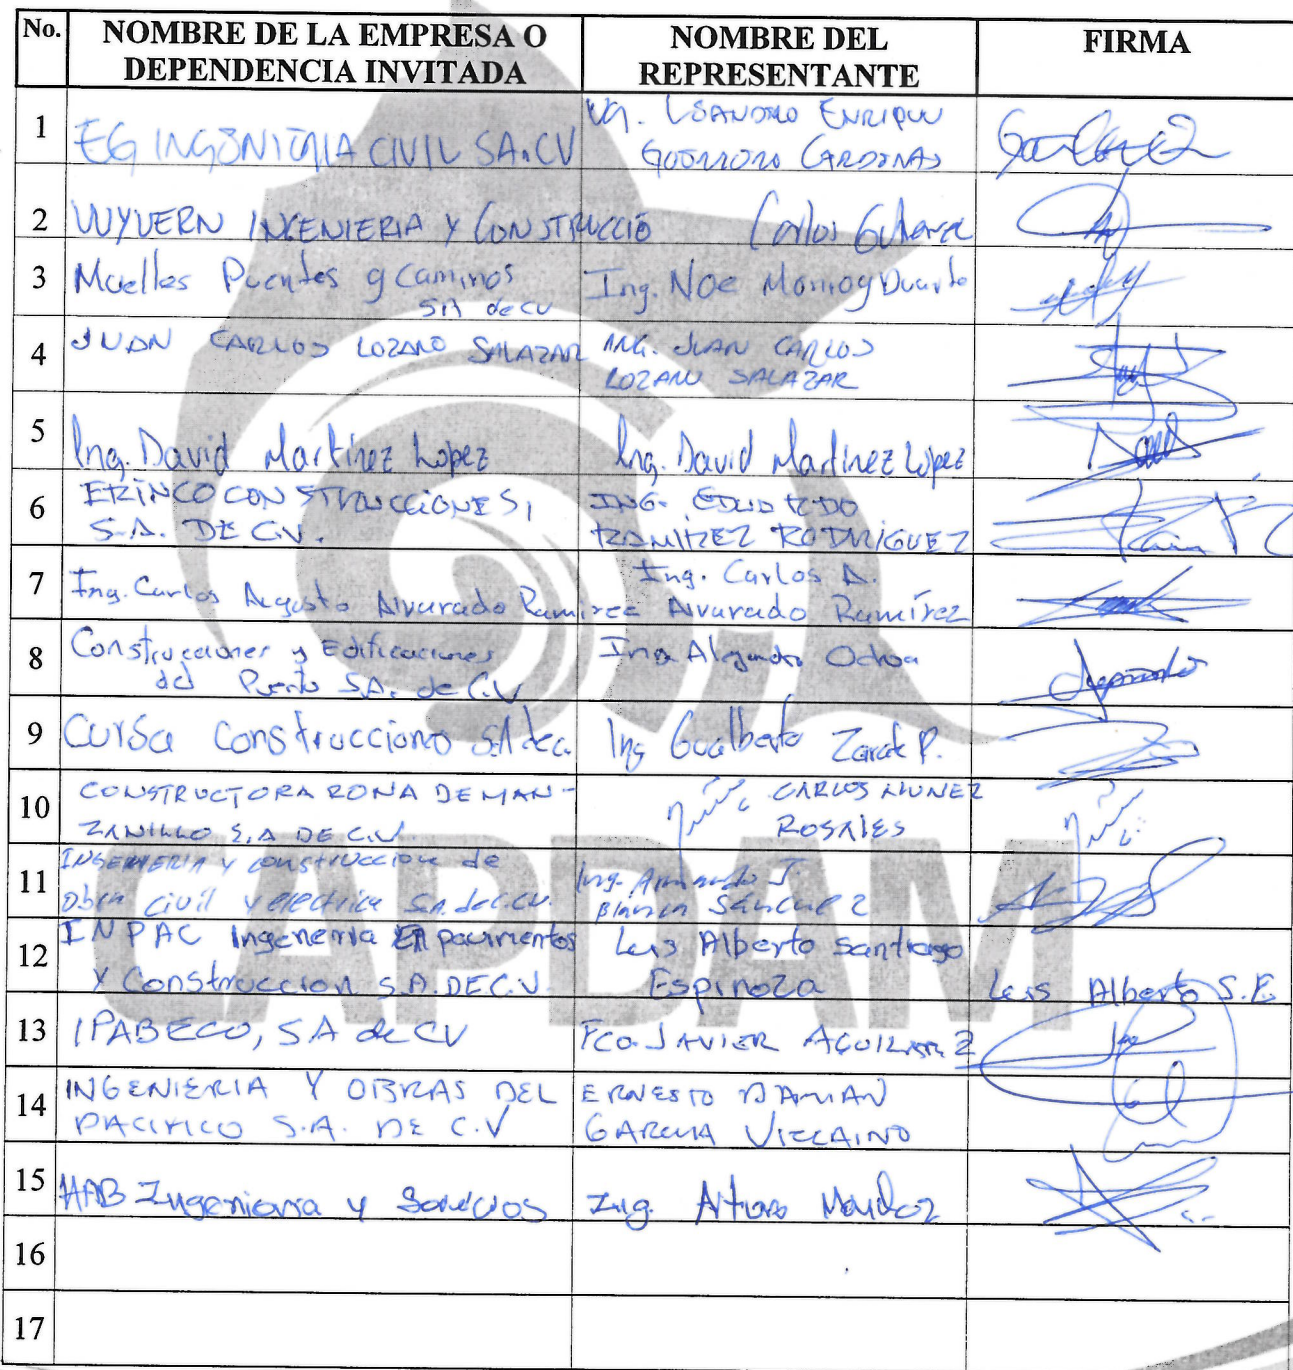 No. NOMBRE DE LA EMPRESA O DEPENDENCIA INVITADA NOMBRE DEL REPRESENTANTE FIRMA
1 EG INGENIERIA CIVIL SA.CV Ing. LISANDRO ENRIQUE
GUERRERO CARDENAS
2 WYVERN INGENIERIA Y CONSTRUCCIO Carlos
3 Muelles Puentes y Caminos
SA de CV Ing. Noe Monroy Duarte
4 JUAN CARLOS LOZANO SALAZAR ING. JUAN CARLOS
LOZANO SALAZAR
5 Ing. David Martínez Lopez Ing. David Martinez López
6 ERINCO CONSTRUCCIONES,
S.A. DE C.V. ING. EDUARDO
RAMIREZ RODRIGUEZ
7 Ing. Carlos Augusto Alvarado Ramirez Ing. Carlos A.
Alvarado Ramírez
8 Construcciones y Edificaciones
del Puerto S.A. de C.V Ing Alejandro Ochoa
9 Cursa Construcciones SA de c. Ing Gualberto Zarate P.
10 CONSTRUCTORA RONA DE MAN-
ZANILLO S.A DE C.V. CARLOS NUÑEZ
ROSALES
11 INGENIERIA Y construccion de
obra civil y electrica S.A. de C.V. Ing. Armando J.
Sánchez
12 INPAC Ingenieria En pavimentos
Y Construccion S.A. DE C.V. Luis Alberto Santiago
Espinoza Luis Alberto S.E.
13 IPABECO, S.A de CV FCO. JAVIER AGUILAR Z
14 INGENIERIA Y OBRAS DEL
PACIFICO S.A. DE C.V ERNESTO DAMIAN
GARCIA VIZCAINO
15 HAB Ingenieria y Servicios Ing. Arturo Mendez
16
17
CAPDAM